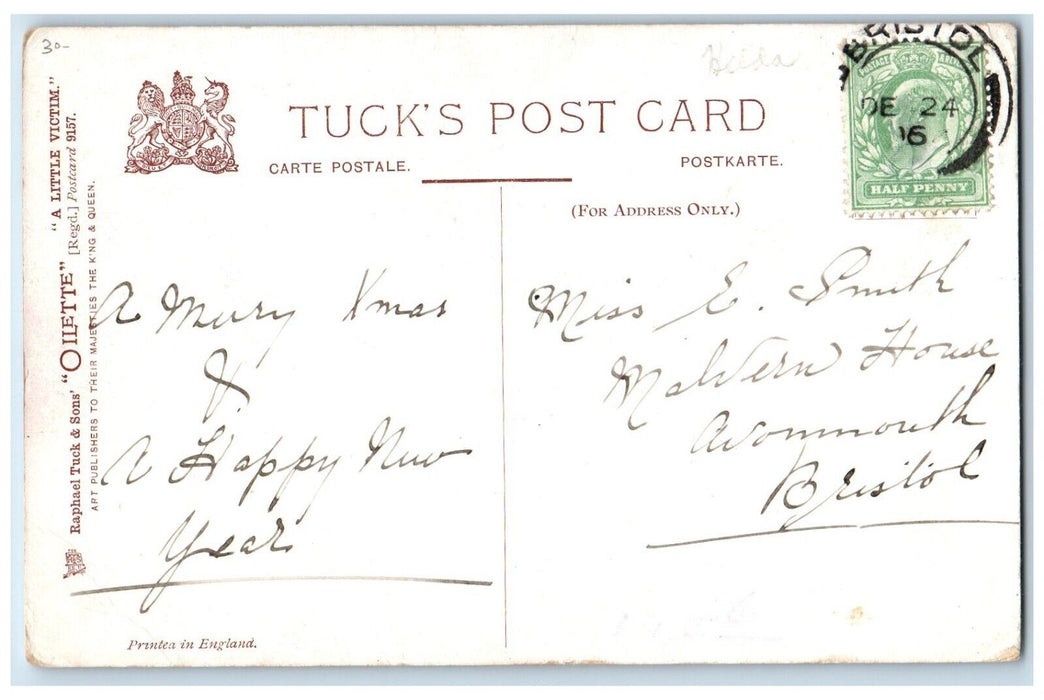 30-
Hilda
TUCK'S POST CARD
CARTE POSTALE.
POSTKARTE.
(FOR ADDRESS ONLY.)
BRISTOL
DE 24
06
POSTAGE
HALF PENNY
Raphael Tuck & Sons' "OILETTE" [Regd.] Postcard 9157.
"A LITTLE VICTIM."
ART PUBLISHERS TO THEIR MAJESTIES THE KING & QUEEN.
A Merry Xmas
&
A Happy New
Year
Miss E. Smith
Malvern House
Avonmouth
Bristol
Printed in England.